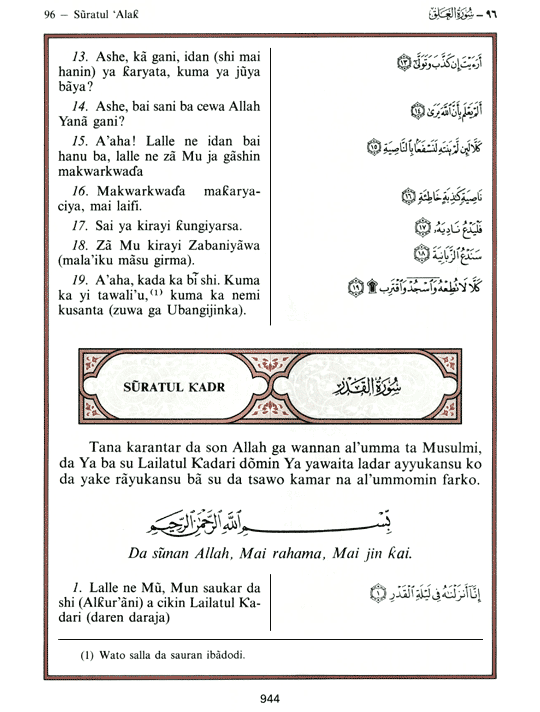 96 – Sũratul ‘Alaƙ
٩٦ – سُورَةُ العَلَق
13. Ashe, kã gani, idan (shi mai
hanin) ya ƙaryata, kuma ya jũya
bãya?
أَرَءَيْتَ إِن كَذَّبَ وَتَوَلَّىٰٓ ١٣
14. Ashe, bai sani ba cewa Allah
Yanã gani?
أَلَمْ يَعْلَم بِأَنَّ ٱللَّهَ يَرَىٰ ١٤
15. A'aha! Lalle ne idan bai
hanu ba, lalle ne zã Mu ja gãshin
makwarkwaɗa
كَلَّا لَئِن لَّمْ يَنتَهِ لَنَسْفَعًۢا بِٱلنَّاصِيَةِ ١٥
16. Makwarkwaɗa maƙarya-
ciya, mai laifi.
نَاصِيَةٍ كَٰذِبَةٍ خَاطِئَةٍ ١٦
17. Sai ya kirayi ƙungiyarsa.
فَلْيَدْعُ نَادِيَهُۥ ١٧
18. Zã Mu kirayi Zabaniyãwa
(mala'iku mãsu girma).
سَنَدْعُ ٱلزَّبَانِيَةَ ١٨
19. A'aha, kada ka bĩ shi. Kuma
ka yi tawali'u,(1) kuma ka nemi
kusanta (zuwa ga Ubangijinka).
كَلَّا لَا تُطِعْهُ وَٱسْجُدْ وَٱقْتَرِب ۩ ١٩
SŨRATUL ƘADR
سُورَةُ القَدْرِ
Tana karantar da son Allah ga wannan al'umma ta Musulmi,
da Ya ba su Lailatul Ƙadari dõmin Ya yawaita ladar ayyukansu ko
da yake rãyukansu bã su da tsawo kamar na al'ummomin farko.
بِسْمِ ٱللَّهِ ٱلرَّحْمَٰنِ ٱلرَّحِيمِ
Da sũnan Allah, Mai rahama, Mai jin ƙai.
1. Lalle ne Mũ, Mun saukar da
shi (Alƙur'ãni) a cikin Lailatul Ƙa-
dari (daren daraja)
إِنَّآ أَنزَلْنَٰهُ فِى لَيْلَةِ ٱلْقَدْرِ ١
(1) Wato salla da sauran ibãdodi.
944